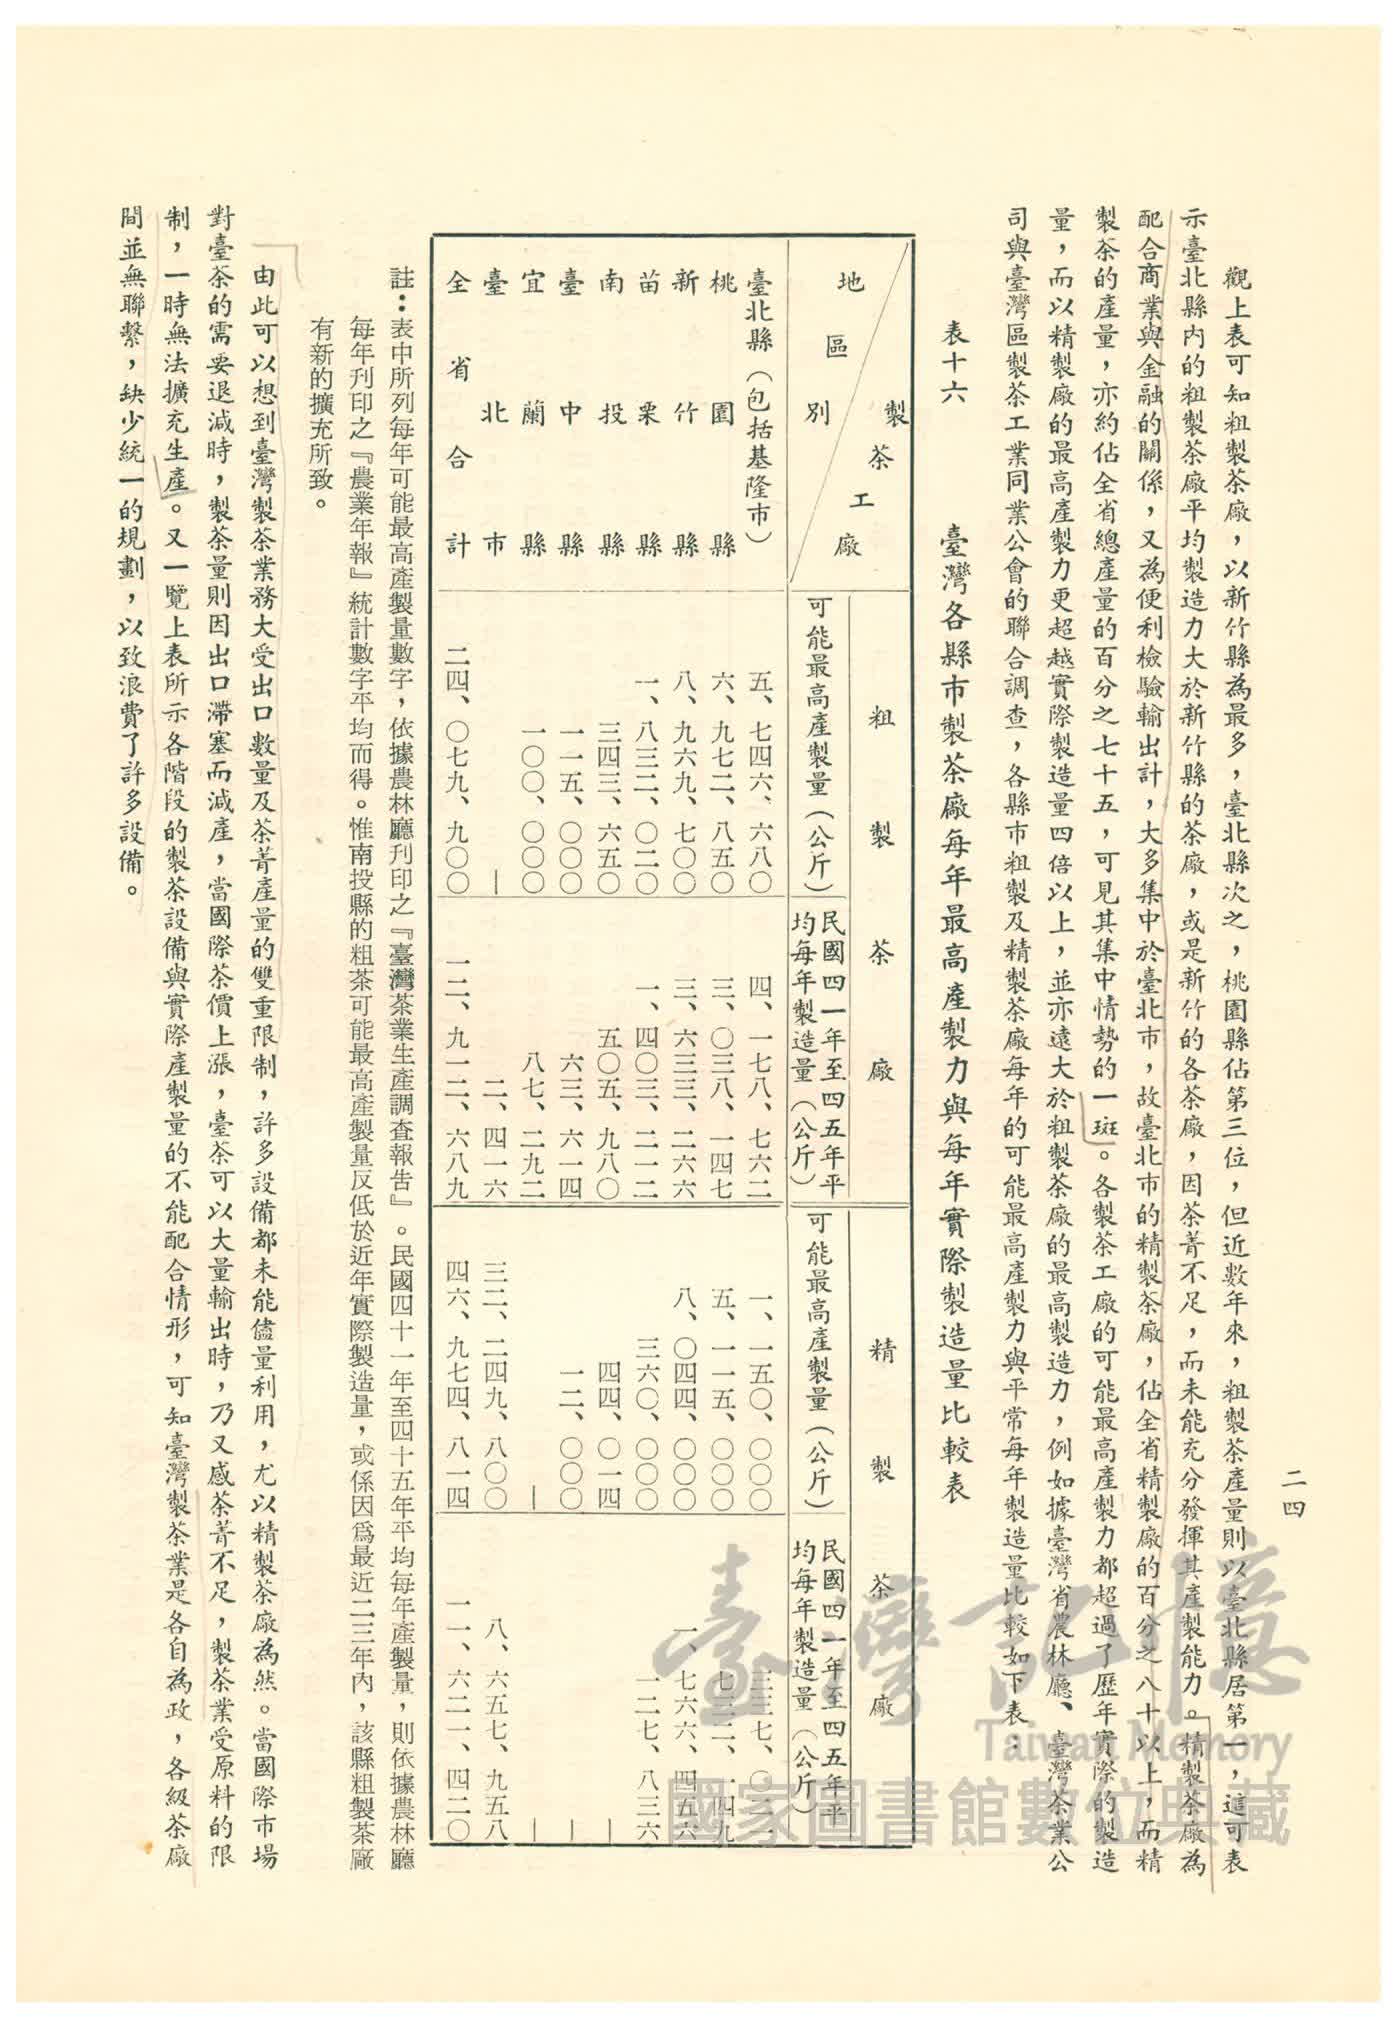 二四
觀上表可知粗製茶廠，以新竹縣為最多，臺北縣次之，桃園縣佔第三位，但近數年來，粗製茶產量則以臺北縣居第一，這可表
示臺北縣內的粗製茶廠平均製造力大於新竹縣的茶廠，或是新竹的各茶廠，因茶菁不足，而未能充分發揮其產製能力。精製茶廠為
配合商業與金融的關係，又為便利檢驗輸出計，大多集中於臺北市，故臺北市的精製茶廠，佔全省精製廠的百分之八十以上，而精
製茶的產量，亦約佔全省總產量的百分之七十五，可見其集中情勢的一斑。各製茶工廠的可能最高產製力都超過了歷年實際的製造
量，而以精製廠的最高產製力更超越實際製造量四倍以上，並亦遠大於粗製茶廠的最高製造力，例如據臺灣省農林廳、臺灣茶業公
司與臺灣區製茶工業同業公會的聯合調查，各縣市粗製及精製茶廠每年的可能最高產製力與平常每年製造量比較如下表：
表十六　臺灣各縣市製茶廠每年最高產製力與每年實際製造量比較表
製茶工廠　粗製茶廠　精製茶廠
地區別　可能最高產製量（公斤）　民國四一年至四五年平均每年製造量（公斤）　可能最高產製量（公斤）　民國四一年至四五年平均每年製造量（公斤）
臺北縣（包括基隆市）　五、七四六、六八〇　四、一七八、七六二　一、一五〇、〇〇〇　三三七、〇二一
桃園縣　六、九七二、八五〇　三、〇三八、一四七　五、一一五、〇〇〇　七三二、一四九
新竹縣　八、九六九、七〇〇　三、六三三、二六六　八、〇四四、〇〇〇　一、七六六、四五六
苗栗縣　一、八三二、〇二〇　一、四〇三、二一二　三六〇、〇〇〇　一二七、八三六
南投縣　三四三、六五〇　五〇五、九八〇　四四、〇一四　—
臺中縣　一一五、〇〇〇　六三、六一四　一二、〇〇〇　—
宜蘭縣　一〇〇、〇〇〇　八七、二九二　—　—
臺北市　—　二、四一六　三二、二四九、八〇〇　八、六五七、九五八
全省合計　二四、〇七九、九〇〇　一二、九一二、六八九　四六、九七四、八一四　一一、六二一、四二〇
註：表中所列每年可能最高產製量數字，依據農林廳刊印之『臺灣茶業生產調查報告』。民國四十一年至四十五年平均每年產製量，則依據農林廳
每年刊印之『農業年報』統計數字平均而得。惟南投縣的粗茶可能最高產製量反低於近年實際製造量，或係因爲最近二三年內，該縣粗製茶廠
有新的擴充所致。
由此可以想到臺灣製茶業務大受出口數量及茶菁產量的雙重限制，許多設備都未能儘量利用，尤以精製茶廠為然。當國際市場
對臺茶的需要退減時，製茶量則因出口滯塞而減產，當國際茶價上漲，臺茶可以大量輸出時，乃又感茶菁不足，製茶業受原料的限
制，一時無法擴充生產。又一覽上表所示各階段的製茶設備與實際產製量的不能配合情形，可知臺灣製茶業是各自為政，各級茶廠
間並無聯繫，缺少統一的規劃，以致浪費了許多設備。
臺灣記憶
Taiwan Memory
國家圖書館數位典藏